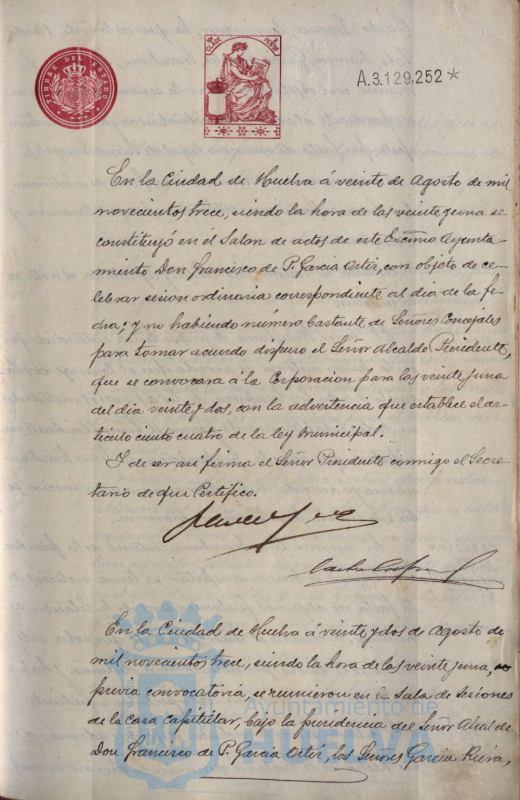 TIMBRE DEL ESTADO
CLASE
A.3.129.252*
En la Ciudad de Huelva á veinte de Agosto de mil
novecientos trece, siendo la hora de las veinte y una se
constituyó en el Salon de actos de este Excmo Ayunta-
miento Don Francisco de P. García Ortiz, con objeto de ce-
lebrar sesion ordinaria correspondiente al dia de la fe-
cha; y no habiendo número bastante de Señores Concejales
para tomar acuerdo dispuso el Señor Alcalde Presidente,
que se convocara á la Corporacion para las veinte y una
del dia veinte y dos, con la advertencia que establece el ar-
tículo ciento cuatro de la ley Municipal.
Y de ser asi firma el Señor Presidente conmigo el Secre-
tario de que Certifico.
En la Ciudad de Huelva á veinte y dos de Agosto de
mil novecientos trece, siendo la hora de las veinte y una,
previa convocatoria, se reunieron en la Sala de Sesiones
de la casa capitular, bajo la presidencia del Señor Alcalde
Don Francisco de P. García Ortiz, los Señores García Riera,
Ayuntamiento de
HUELVA